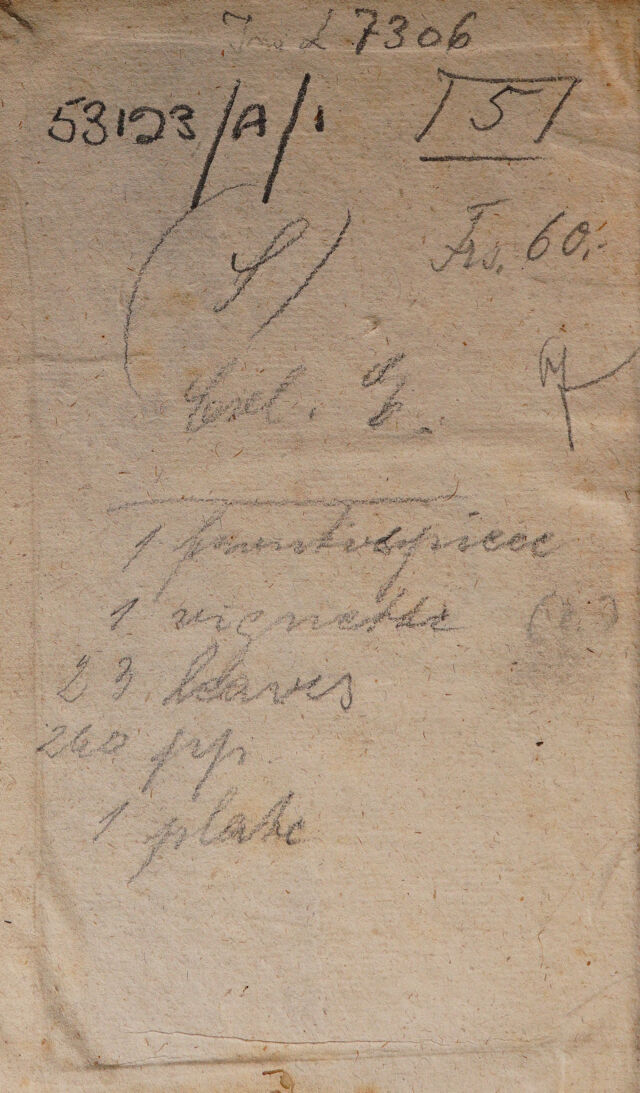 7306
53123/A/1
5
Frs. 60.-
1 frontispiece
1 vignette
23 leaves
260 pp.
1 plate